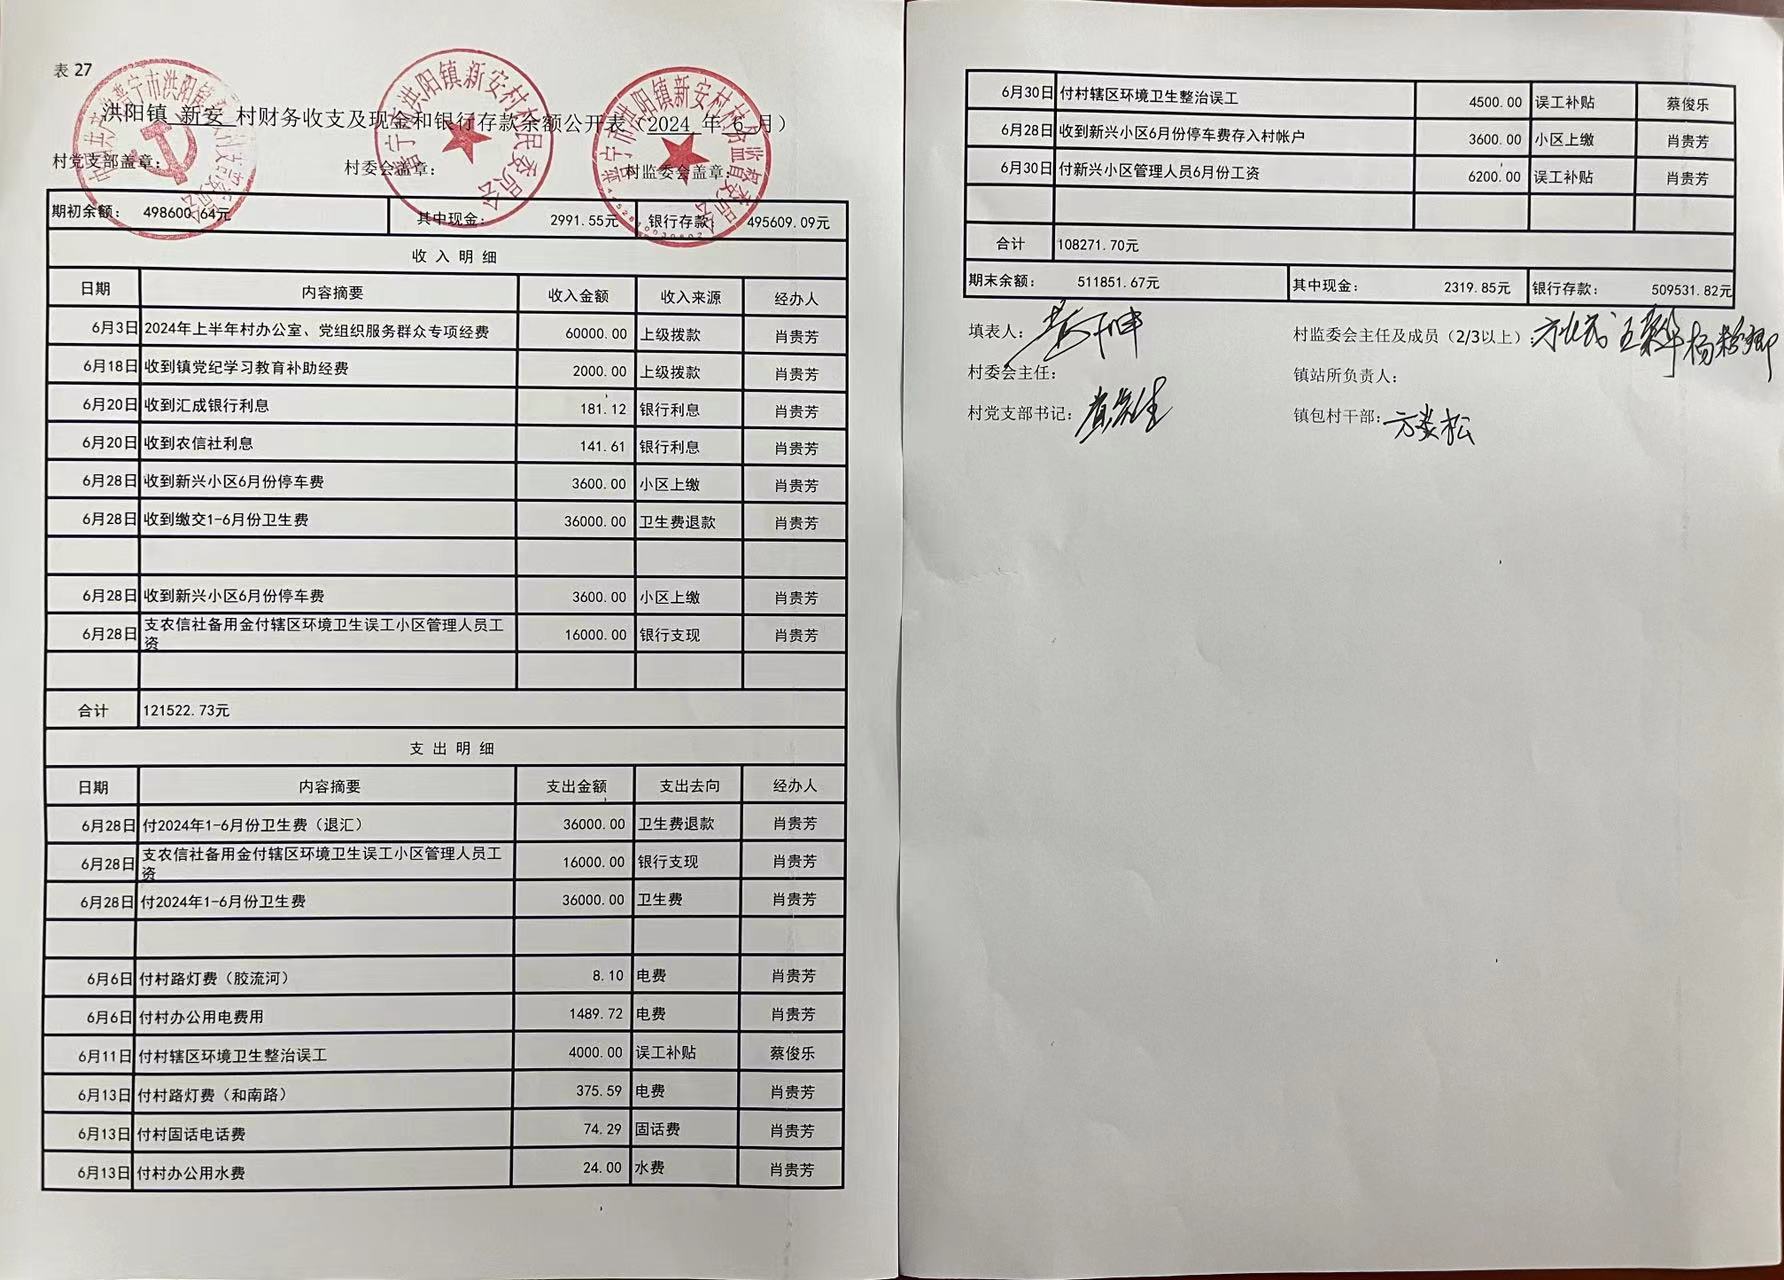 表 27
洪阳镇 新安 村财务收支及现金和银行存款余额公开表（2024 年 6 月）
村党支部盖章： 村委会盖章： 村监委会盖章：
期初余额： 498600.64元 其中现金： 2991.55元 银行存款： 495609.09元
收 入 明 细
日期 内容摘要 收入金额 收入来源 经办人
6月3日 2024年上半年村办公室、党组织服务群众专项经费 60000.00 上级拨款 肖贵芳
6月18日 收到镇党纪学习教育补助经费 2000.00 上级拨款 肖贵芳
6月20日 收到汇成银行利息 181.12 银行利息 肖贵芳
6月20日 收到农信社利息 141.61 银行利息 肖贵芳
6月28日 收到新兴小区6月份停车费 3600.00 小区上缴 肖贵芳
6月28日 收到缴交1-6月份卫生费 36000.00 卫生费退款 肖贵芳
6月28日 收到新兴小区6月份停车费 3600.00 小区上缴 肖贵芳
6月28日 支农信社备用金付辖区环境卫生误工小区管理人员工资 16000.00 银行支现 肖贵芳
合计 121522.73元
支 出 明 细
日期 内容摘要 支出金额 支出去向 经办人
6月28日 付2024年1-6月份卫生费（退汇） 36000.00 卫生费退款 肖贵芳
6月28日 支农信社备用金付辖区环境卫生误工小区管理人员工资 16000.00 银行支现 肖贵芳
6月28日 付2024年1-6月份卫生费 36000.00 卫生费 肖贵芳
6月6日 付村路灯费（胶流河） 8.10 电费 肖贵芳
6月6日 付村办公用电费用 1489.72 电费 肖贵芳
6月11日 付村辖区环境卫生整治误工 4000.00 误工补贴 蔡俊乐
6月13日 付村路灯费（和南路） 375.59 电费 肖贵芳
6月13日 付村固话电话费 74.29 固话费 肖贵芳
6月13日 付村办公用水费 24.00 水费 肖贵芳
6月30日 付村辖区环境卫生整治误工 4500.00 误工补贴 蔡俊乐
6月28日 收到新兴小区6月份停车费存入村帐户 3600.00 小区上缴 肖贵芳
6月30日 付新兴小区管理人员6月份工资 6200.00 误工补贴 肖贵芳
合计 108271.70元
期末余额： 511851.67元 其中现金： 2319.85元 银行存款： 509531.82元
填表人： 村监委会主任及成员（2/3以上）：
村委会主任： 镇站所负责人：
村党支部书记： 镇包村干部：